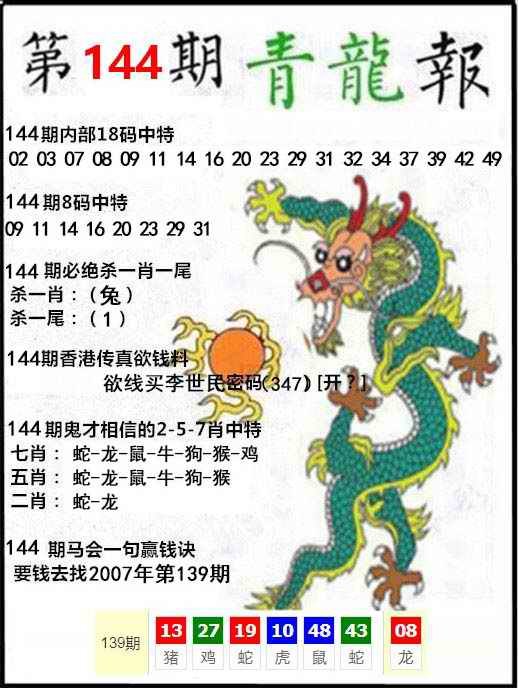 第144期青龍報
144期内部18码中特
02 03 07 08 09 11 14 16 20 23 29 31 32 34 37 39 42 49
144期8码中特
09 11 14 16 20 23 29 31
144 期必绝杀一肖一尾
杀一肖：(兔)
杀一尾：(1)
144期香港传真欲钱料
欲线买李世民密码(347) [开?]
144期鬼才相信的2-5-7肖中特
七肖： 蛇-龙-鼠-牛-狗-猴-鸡
五肖： 蛇-龙-鼠-牛-狗-猴
二肖： 蛇-龙
144 期马会一句赢钱诀
要钱去找2007年第139期
139期 13 27 19 10 48 43 08
猪 鸡 蛇 虎 鼠 蛇 龙